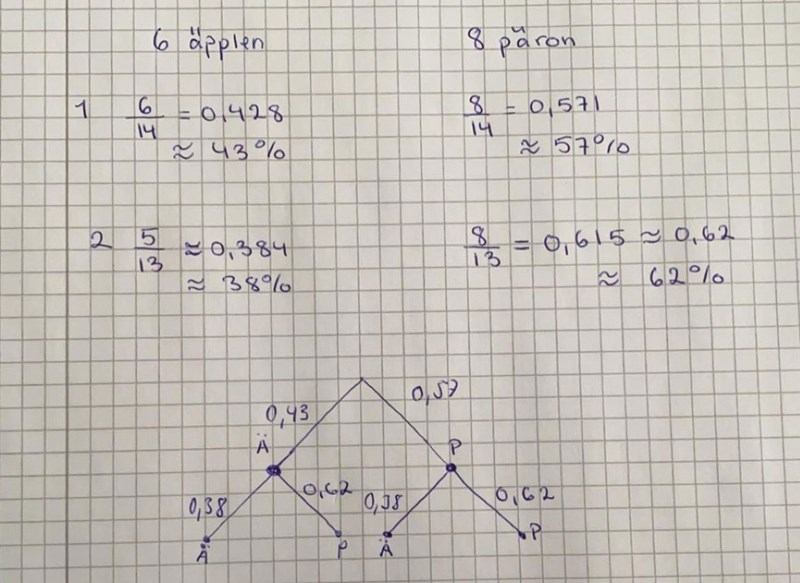 6 äpplen 8 päron
1 6/14 = 0,428 8/14 = 0,571
≈ 43% ≈ 57%
2 5/13 ≈ 0,384 8/13 = 0,615 ≈ 0,62
≈ 38% ≈ 62%
0,43 0,57
Ä P
0,38 0,62 0,38 0,62
Ä P Ä P